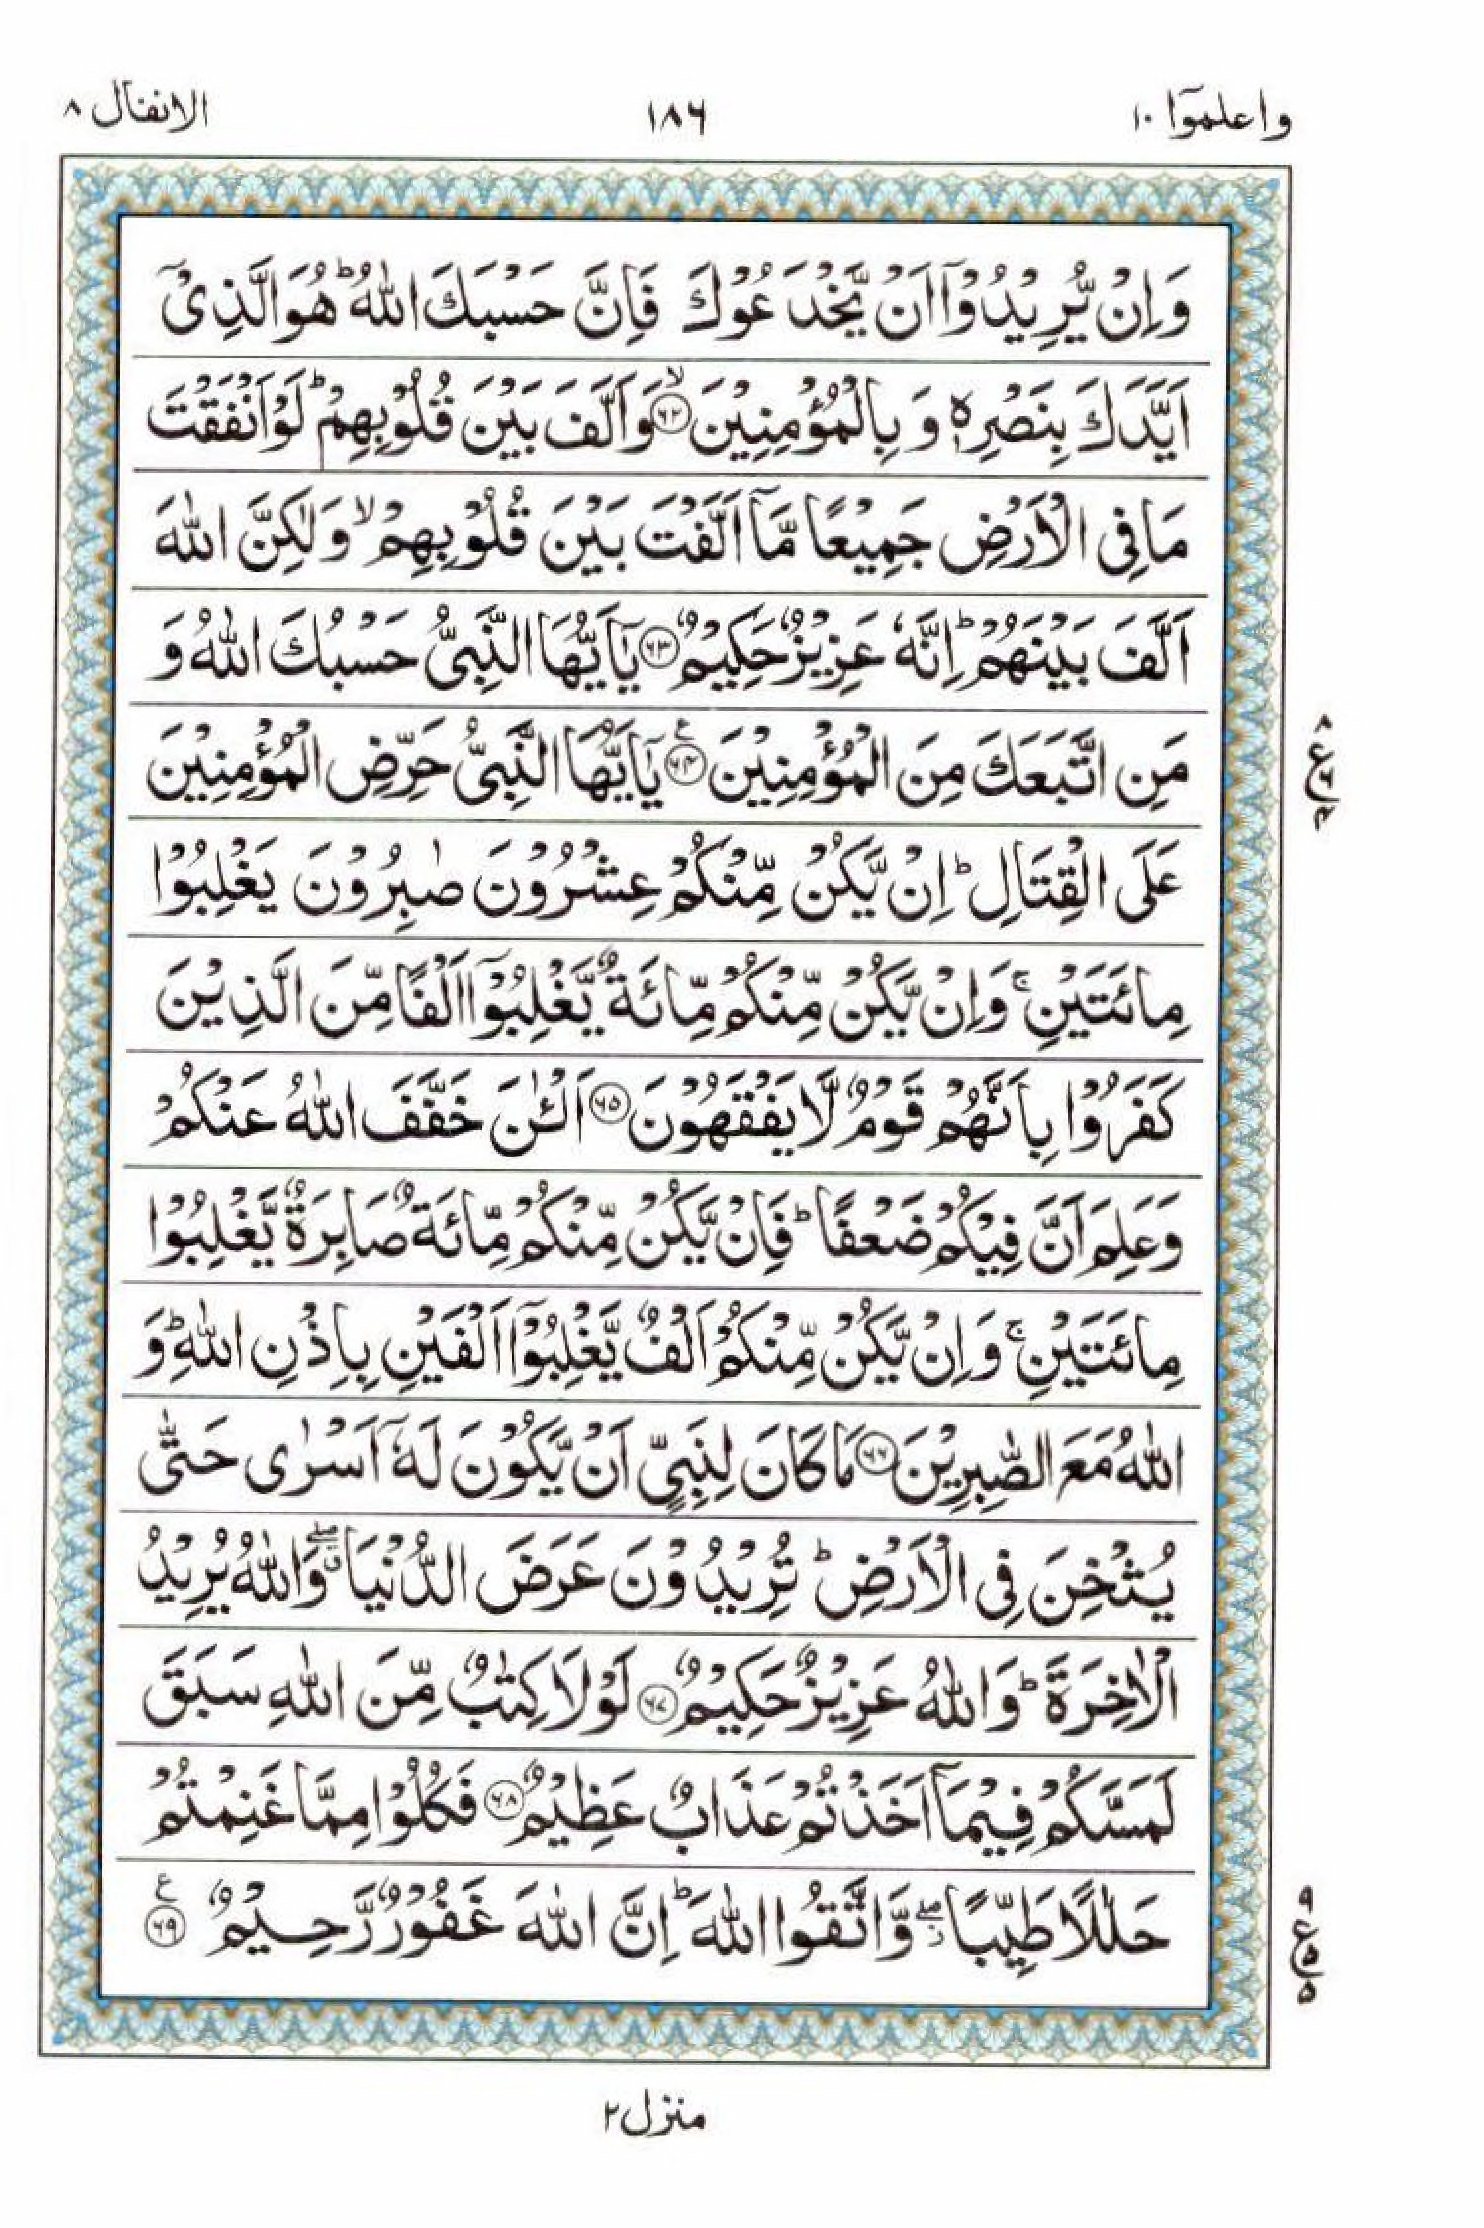 واعلموٓا ۱۰
۱۸۶
الانفال ۸
وَاِنْ يُّرِيْدُوْٓا اَنْ يَّخْدَعُوْكَ فَاِنَّ حَسْبَكَ اللّٰهُ ؕ هُوَ الَّذِىْٓ
اَيَّدَكَ بِنَصْرِهٖ وَ بِالْمُؤْمِنِيْنَ ۙ‏﴿۶۲﴾ وَاَلَّفَ بَيْنَ قُلُوْبِهِمْ ؕ لَوْ اَنْفَقْتَ
مَا فِى الْاَرْضِ جَمِيْعًا مَّاۤ اَلَّفْتَ بَيْنَ قُلُوْبِهِمْ ۙ وَلٰكِنَّ اللّٰهَ
اَلَّفَ بَيْنَهُمْ ؕ اِنَّهٗ عَزِيْزٌ حَكِيْمٌ ﴿۶۳﴾ يٰۤاَيُّهَا النَّبِىُّ حَسْبُكَ اللّٰهُ وَ
مَنِ اتَّبَعَكَ مِنَ الْمُؤْمِنِيْنَ ﴿۶۴﴾ ع يٰۤاَيُّهَا النَّبِىُّ حَرِّضِ الْمُؤْمِنِيْنَ
۸
ع
۶
۴
عَلَى الْقِتَالِ ؕ اِنْ يَّكُنْ مِّنْكُمْ عِشْرُوْنَ صٰبِرُوْنَ يَغْلِبُوْا
مِائَتَيْنِ ۚ وَاِنْ يَّكُنْ مِّنْكُمْ مِّائَةٌ يَّغْلِبُوْۤا اَلْفًا مِّنَ الَّذِيْنَ
كَفَرُوْا بِاَنَّهُمْ قَوْمٌ لَّا يَفْقَهُوْنَ ﴿۶۵﴾ اَلْـٰٔنَ خَفَّفَ اللّٰهُ عَنْكُمْ
وَعَلِمَ اَنَّ فِيْكُمْ ضَعْفًا ؕ فَاِنْ يَّكُنْ مِّنْكُمْ مِّائَةٌ صَابِرَةٌ يَّغْلِبُوْا
مِائَتَيْنِ ۚ وَاِنْ يَّكُنْ مِّنْكُمْ اَلْفٌ يَّغْلِبُوْۤا اَلْفَيْنِ بِاِذْنِ اللّٰهِ ؕ وَ
اللّٰهُ مَعَ الصّٰبِرِيْنَ ﴿۶۶﴾ مَا كَانَ لِنَبِىٍّ اَنْ يَّكُوْنَ لَهٗۤ اَسْرٰى حَتّٰى
يُثْخِنَ فِى الْاَرْضِ ؕ تُرِيْدُوْنَ عَرَضَ الدُّنْيَا ۖۗ وَاللّٰهُ يُرِيْدُ
الْاٰخِرَةَ ؕ وَاللّٰهُ عَزِيْزٌ حَكِيْمٌ ﴿۶۷﴾ لَوْلَا كِتٰبٌ مِّنَ اللّٰهِ سَبَقَ
لَمَسَّكُمْ فِيْمَاۤ اَخَذْتُمْ عَذَابٌ عَظِيْمٌ ﴿۶۸﴾ فَكُلُوْا مِمَّا غَنِمْتُمْ
حَلٰلًا طَيِّبًا ۖ وَّاتَّقُوا اللّٰهَ ؕ اِنَّ اللّٰهَ غَفُوْرٌ رَّحِيْمٌ ﴿۶۹﴾ ع
۹
ع
۵
۵
منزل ۲